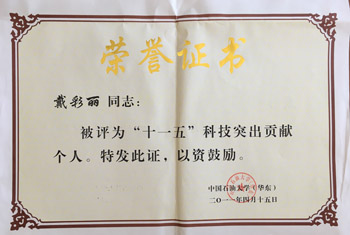 荣誉证书
戴彩丽 同志：
被评为“十一五”科技突出贡献
个人。特发此证，以资鼓励。
中国石油大学（华东）
二〇一一年四月十五日